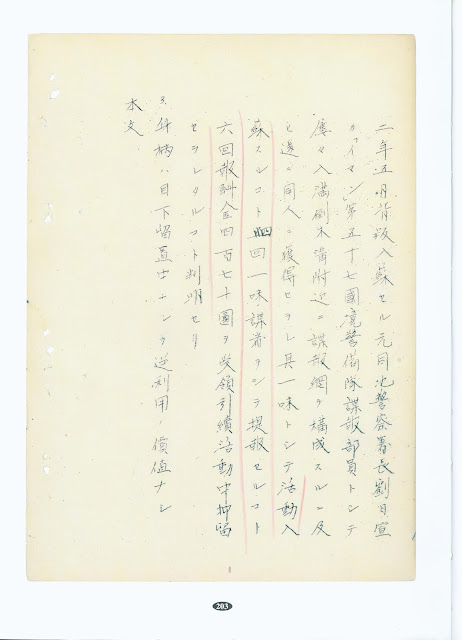 二年五月背叛入蘇セル元同地警察署長劉日宣
カ「イマン」第五十七國境警備隊諜報部員トシテ
屡々入満剃木溝附近ニ諜報網ヲ構成スルニ及
ヒ遂ニ同人ニ獲得セラレ其一味トシテ活動入
蘇スルコト四回一味諜者ヲシテ提報セルコト
六回報酬金四百七十圓ヲ受領引續活動中抑留
セラレタルコト判明セリ
3、身柄ハ目下留置中ナルモ逆利用ノ價値ナシ
本文
203